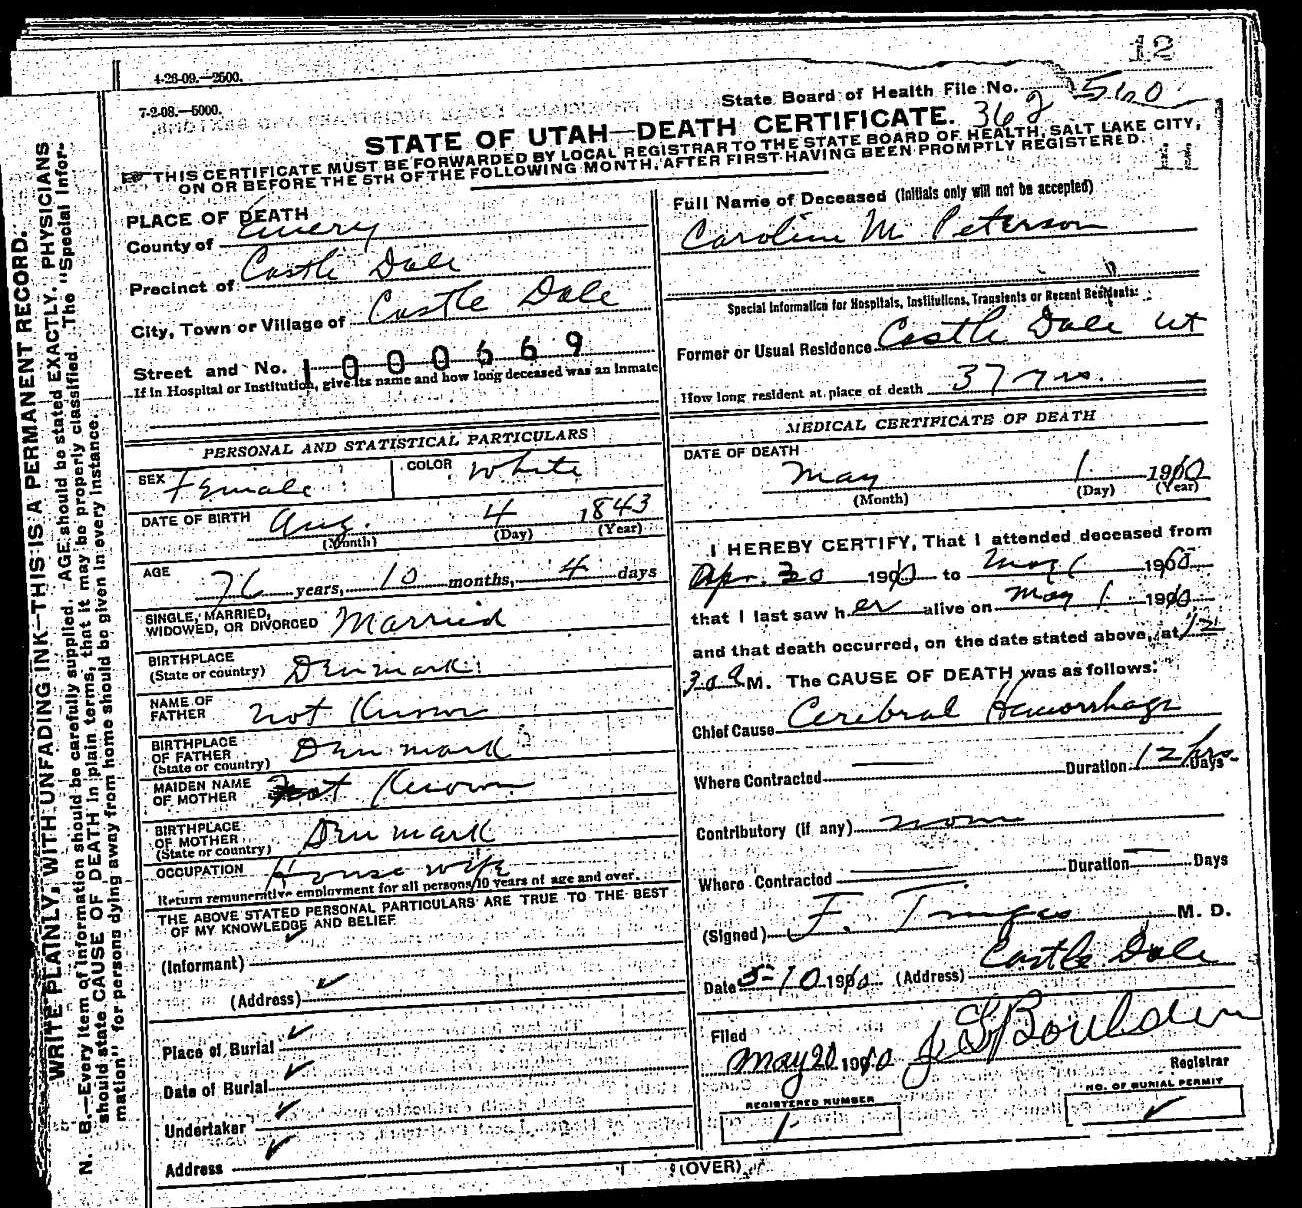 12
4-26-09.—2500.
7-2-08.—5000.
State Board of Health File No. 560
362
STATE OF UTAH—DEATH CERTIFICATE.
THIS CERTIFICATE MUST BE FORWARDED BY LOCAL REGISTRAR TO THE STATE BOARD OF HEALTH, SALT LAKE CITY,
ON OR BEFORE THE 5TH OF THE FOLLOWING MONTH, AFTER FIRST HAVING BEEN PROMPTLY REGISTERED.
WRITE PLAINLY, WITH UNFADING INK—THIS IS A PERMANENT RECORD.
N. B.—Every item of information should be carefully supplied. AGE should be stated EXACTLY. PHYSICIANS
should state CAUSE OF DEATH in plain terms, that it may be properly classified. The "Special Infor-
mation" for persons dying away from home should be given in every instance.
PLACE OF DEATH
County of Emery
Precinct of Castle Dale
City, Town or Village of Castle Dale
Street and No. 1000669
If in Hospital or Institution, give its name and how long deceased was an inmate
PERSONAL AND STATISTICAL PARTICULARS
SEX Female COLOR White
DATE OF BIRTH Aug. 4 1843
(Month) (Day) (Year)
AGE 76 years, 10 months, 4 days
SINGLE, MARRIED,
WIDOWED, OR DIVORCED Married
BIRTHPLACE
(State or country) Denmark
NAME OF
FATHER not Known
BIRTHPLACE
OF FATHER
(State or country) Denmark
MAIDEN NAME
OF MOTHER not Known
BIRTHPLACE
OF MOTHER
(State or country) Denmark
OCCUPATION House wife
Return remunerative employment for all persons 10 years of age and over.
THE ABOVE STATED PERSONAL PARTICULARS ARE TRUE TO THE BEST
OF MY KNOWLEDGE AND BELIEF
(Informant) ✓
(Address) ✓
Place of Burial ✓
Date of Burial ✓
Undertaker ✓
Address ✓
Full Name of Deceased (Initials only will not be accepted)
Caroline M Peterson
Special Information for Hospitals, Institutions, Transients or Recent Residents:
Former or Usual Residence Castle Dale Ut
How long resident at place of death 37 yrs.
MEDICAL CERTIFICATE OF DEATH
DATE OF DEATH
May 1 1910
(Month) (Day) (Year)
I HEREBY CERTIFY, That I attended deceased from
Apr. 30 1910 to May 1 1910
that I last saw her alive on May 1 1910
and that death occurred, on the date stated above, at 12
30 a M. The CAUSE OF DEATH was as follows:
Chief Cause Cerebral Hemorrhage
Where Contracted Duration 12 hrs Days
Contributory (if any) none
Where Contracted Duration Days
(Signed) F. M. D.
Date 5-10 1910 (Address) Castle Dale
Filed
May 20 1910 J G Boulden
Registrar
REGISTERED NUMBER
1
NO. OF BURIAL PERMIT
✓
(OVER)